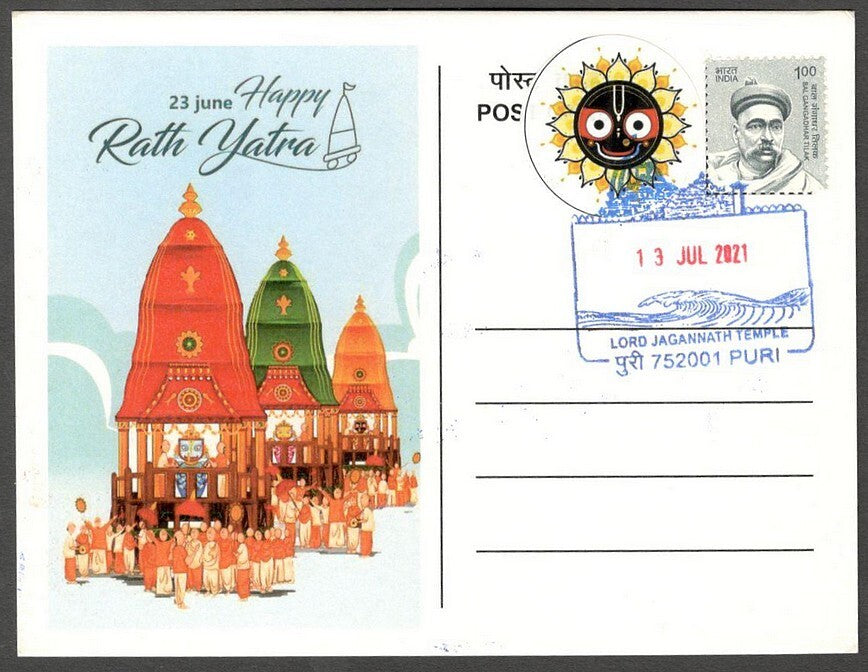 23 june Happy
Rath Yatra
पोस्
POS
भारत
INDIA
1.00
बाल गंगाधर तिलक
BAL GANGADHAR TILAK
13 JUL 2021
LORD JAGANNATH TEMPLE
पुरी 752001 PURI